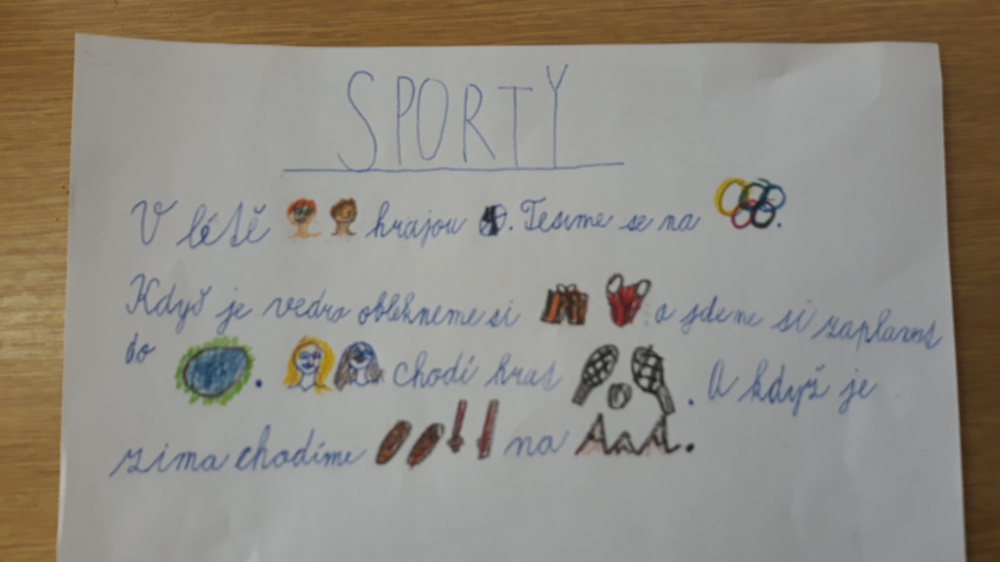 SPORTY
V létě hrajou . Tesíme se na .
Když je vedro oblékneme si a jdeme si zaplavat
do . chodí hrat . A když je
zima chodíme na .